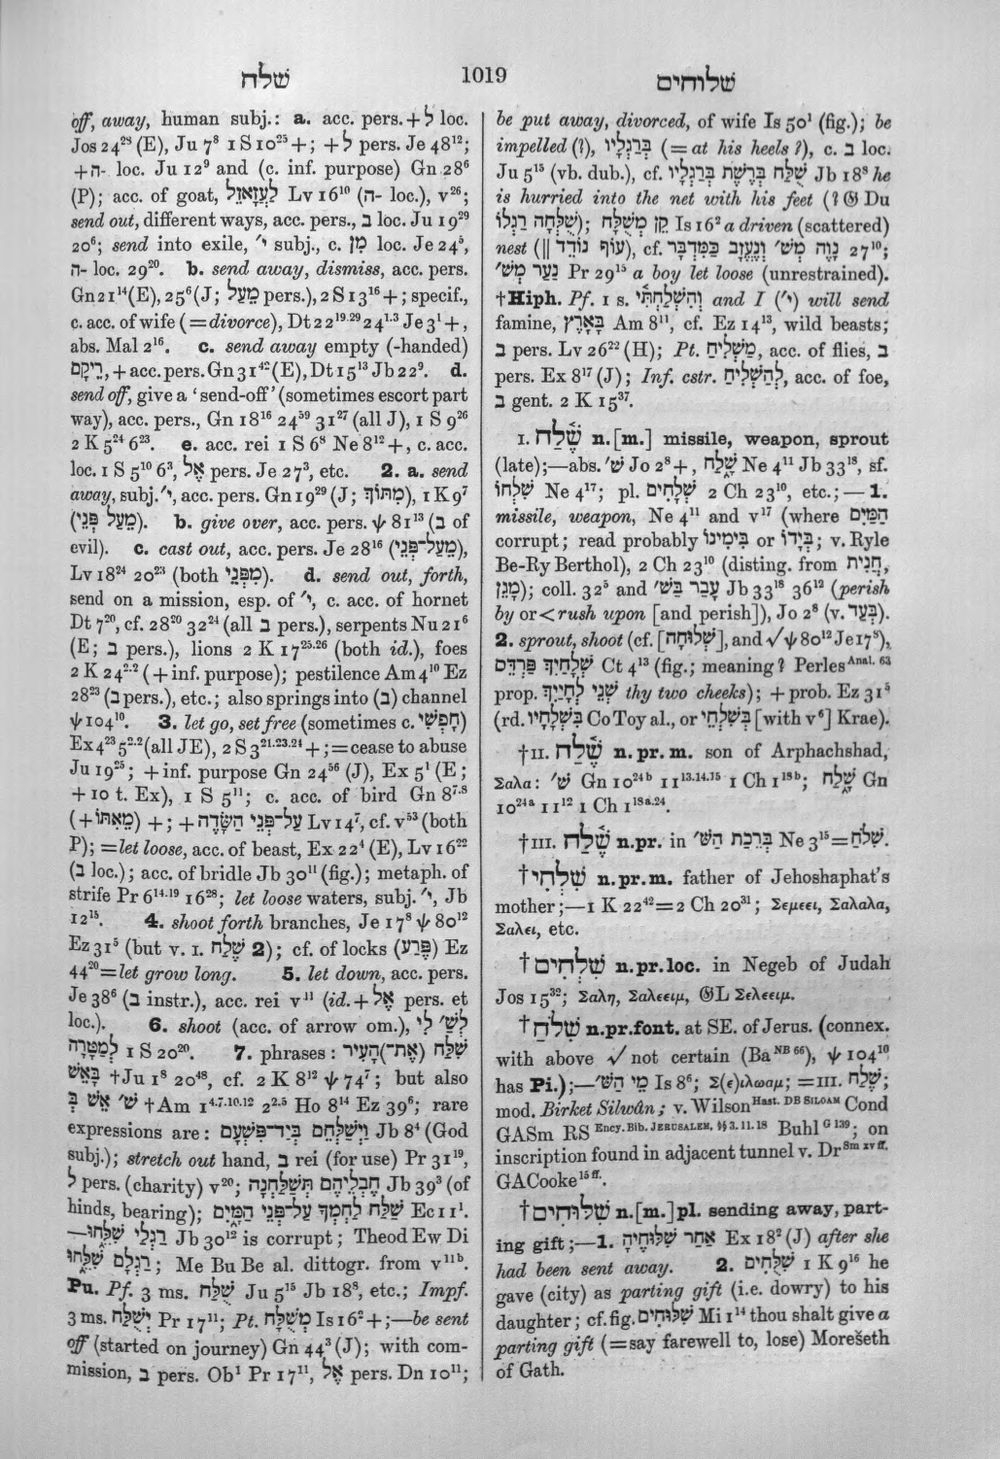 שלח
1019
שלוחים
off, away, human subj.: a. acc. pers. + לְ loc.
Jos 24²⁸ (E), Ju 7⁸ 1 S 10²⁵ +; + לְ pers. Je 48¹²;
+ ־ה loc. Ju 12⁹ and (c. inf. purpose) Gn 28⁶
(P); acc. of goat, לַעֲזָאזֵל Lv 16¹⁰ (־ה loc.), v²⁶;
send out, different ways, acc. pers., בְּ loc. Ju 19²⁹
20⁶; send into exile, י׳ subj., c. מִן loc. Je 24⁵,
־ה loc. 29²⁰. b. send away, dismiss, acc. pers.
Gn 21¹⁴ (E), 25⁶ (J; מֵעַל pers.), 2 S 13¹⁶ +; specif.,
c. acc. of wife (=divorce), Dt 22¹⁹·²⁹ 24¹·³ Je 3¹ +,
abs. Mal 2¹⁶. c. send away empty (-handed)
רֵיקָם, + acc. pers. Gn 31⁴² (E), Dt 15¹³ Jb 22⁹. d.
send off, give a ‘send-off’ (sometimes escort part
way), acc. pers., Gn 18¹⁶ 24⁵⁹ 31²⁷ (all J), 1 S 9²⁶
2 K 5²⁴ 6²³. e. acc. rei 1 S 6⁸ Ne 8¹² +, c. acc.
loc. 1 S 5¹⁰ 6³, אֶל pers. Je 27³, etc. 2. a. send
away, subj. י׳, acc. pers. Gn 19²⁹ (J; מִתּוֹךְ), 1 K 9⁷
(מֵעַל פְּנֵי). b. give over, acc. pers. ψ 81¹³ (בְּ of
evil). c. cast out, acc. pers. Je 28¹⁶ (מֵעַל־פְּנֵי),
Lv 18²⁴ 20²³ (both מִפְּנֵי). d. send out, forth,
send on a mission, esp. of י׳, c. acc. of hornet
Dt 7²⁰, cf. 28²⁰ 32²⁴ (all בְּ pers.), serpents Nu 21⁶
(E; בְּ pers.), lions 2 K 17²⁵·²⁶ (both id.), foes
2 K 24²·² (+ inf. purpose); pestilence Am 4¹⁰ Ez
28²³ (בְּ pers.), etc.; also springs into (בְּ) channel
ψ 104¹⁰. 3. let go, set free (sometimes c. חָפְשִׁי)
Ex 4²³ 5²·² (all JE), 2 S 3²¹·²³·²⁴ +; = cease to abuse
Ju 19²⁵; + inf. purpose Gn 24⁵⁶ (J), Ex 5¹ (E;
+ 10 t. Ex), 1 S 5¹¹; c. acc. of bird Gn 8⁷·⁸
(+ מֵאִתּוֹ) +; + עַל־פְּנֵי הַשָּׂדֶה Lv 14⁷, cf. v⁵³ (both
P); = let loose, acc. of beast, Ex 22⁴ (E), Lv 16²²
(בְּ loc.); acc. of bridle Jb 30¹¹ (fig.); metaph. of
strife Pr 6¹⁴·¹⁹ 16²⁸; let loose waters, subj. י׳, Jb
12¹⁵. 4. shoot forth branches, Je 17⁸ ψ 80¹²
Ez 31⁵ (but v. I. שֶׁלַח 2); cf. of locks (פֶּרַע) Ez
44²⁰ = let grow long. 5. let down, acc. pers.
Je 38⁶ (בְּ instr.), acc. rei v¹¹ (id. + אֶל pers. et
loc.). 6. shoot (acc. of arrow om.), לְשׁ׳ לִי
לְמַטָּרָה 1 S 20²⁰. 7. phrases: שִׁלַּח (אֶת־)הָעִיר
בָּאֵשׁ † Ju 1⁸ 20⁴⁸, cf. 2 K 8¹² ψ 74⁷; but also
שׁ׳ אֵשׁ בְּ † Am 1⁴·⁷·¹⁰·¹² 2²·⁵ Ho 8¹⁴ Ez 39⁶; rare
expressions are: וַיְשַׁלְּחֵם בְּיַד־פִּשְׁעָם Jb 8⁴ (God
subj.); stretch out hand, בְּ rei (for use) Pr 31¹⁹,
לְ pers. (charity) v²⁰; חֶבְלֵיהֶם תְּשַׁלַּחְנָה Jb 39³ (of
hinds, bearing); שַׁלַּח לַחְמְךָ עַל־פְּנֵי הַמָּיִם Ec 11¹.
—רַגְלַי שִׁלֵּחוּ Jb 30¹² is corrupt; Theod Ew Di
רַגְלָם שִׁלֵּחוּ; Me Bu Be al. dittogr. from v¹¹ᵇ.
Pu. Pf. 3 ms. שֻׁלַּח Ju 5¹⁵ Jb 18⁸, etc.; Impf.
3 ms. יְשֻׁלַּח Pr 17¹¹; Pt. מְשֻׁלָּח Is 16² +;—be sent
off (started on journey) Gn 44³ (J); with com-
mission, בְּ pers. Ob¹ Pr 17¹¹, אֶל pers. Dn 10¹¹;
be put away, divorced, of wife Is 50¹ (fig.); be
impelled (?), בְּרַגְלָיו (= at his heels ?), c. בְּ loc.
Ju 5¹⁵ (vb. dub.), cf. שֻׁלַּח בְּרֶשֶׁת בְּרַגְלָיו Jb 18⁸ he
is hurried into the net with his feet (? 𝔊 Du
שֻׁלְּחָה רַגְלוֹ); קֵן מְשֻׁלָּח Is 16² a driven (scattered)
nest (|| עוֹף נוֹדֵד), cf. נָוֶה מְשׁ׳ וְנֶעֱזָב כַּמִּדְבָּר 27¹⁰;
נַעַר מְשׁ׳ Pr 29¹⁵ a boy let loose (unrestrained).
†Hiph. Pf. 1 s. וְהִשְׁלַחְתִּי and I (י׳) will send
famine, בָּאָרֶץ Am 8¹¹, cf. Ez 14¹³, wild beasts;
בְּ pers. Lv 26²² (H); Pt. מַשְׁלִיחַ, acc. of flies, בְּ
pers. Ex 8¹⁷ (J); Inf. cstr. לְהַשְׁלִיחַ, acc. of foe,
בְּ gent. 2 K 15³⁷.
I. שֶׁ֫לַח n.[m.] missile, weapon, sprout
(late);—abs. שׁ׳ Jo 2⁸ +, שָׁלַח Ne 4¹¹ Jb 33¹⁸, sf.
שִׁלְחוֹ Ne 4¹⁷; pl. שְׁלָחִים 2 Ch 23¹⁰, etc.;—1.
missile, weapon, Ne 4¹¹ and v¹⁷ (where הַמַּיִם
corrupt; read probably בִּימִינוֹ or בְּיָדוֹ; v. Ryle
Be-Ry Berthol), 2 Ch 23¹⁰ (disting. from חֲנִית,
מָגֵן); coll. 32⁵ and עָבַר בְּשׁ׳ Jb 33¹⁸ 36¹² (perish
by or < rush upon [and perish]), Jo 2⁸ (v. בְּעַד).
2. sprout, shoot (cf. [שְׁלוּחָה], and √ ψ 80¹² Je 17⁸),
שְׁלָחַיִךְ פַּרְדֵּס Ct 4¹³ (fig.; meaning ? Perles ᴬⁿᵃˡ· ⁶³
prop. שְׁנֵי לְחָיַיִךְ thy two cheeks); + prob. Ez 31⁵
(rd. בִּשְׁלָחָיו Co Toy al., or בְּשִׁלְחֵי [with v⁶] Krae).
†II. שֶׁ֫לַח n. pr. m. son of Arphachshad,
Σαλα: שׁ׳ Gn 10²⁴ᵇ 11¹³·¹⁴·¹⁵ 1 Ch 1¹⁸ᵇ; שָׁלַח Gn
10²⁴ᵃ 11¹² 1 Ch 1¹⁸ᵃ·²⁴.
†III. שֶׁ֫לַח n. pr. in בְּרֵכַת הַשּׁ׳ Ne 3¹⁵ = שִׁלֹחַ.
†שִׁלְחִי n. pr. m. father of Jehoshaphat's
mother;—1 K 22⁴² = 2 Ch 20³¹; Σεμεει, Σαλαλα,
Σαλει, etc.
†שִׁלְחִים n. pr. loc. in Negeb of Judah
Jos 15³²; Σαλη, Σαλεειμ, 𝔊L Σελεειμ.
†שִׁלֹחַ n. pr. font. at SE. of Jerus. (connex.
with above √ not certain (Ba ᴺᴮ ⁶⁶), ψ 104¹⁰
has Pi.);—מֵי הַשּׁ׳ Is 8⁶; Σ(ε)ιλωαμ; = III. שֶׁלַח;
mod. Birket Silwân; v. Wilson Hast. DB SILOAM Cond
GASm RS Ency. Bib. JERUSALEM, §§ 3. 11. 18 Buhl G 139; on
inscription found in adjacent tunnel v. Dr Sm xv ff.
GACooke ¹⁵ ᶠᶠ·
†שִׁלּוּחִים n.[m.] pl. sending away, part-
ing gift;—1. אַחַר שִׁלּוּחֶיהָ Ex 18² (J) after she
had been sent away. 2. שִׁלֻּחִים 1 K 9¹⁶ he
gave (city) as parting gift (i.e. dowry) to his
daughter; cf. fig. שִׁלּוּחִים Mi 1¹⁴ thou shalt give a
parting gift (= say farewell to, lose) Morešeth
of Gath.